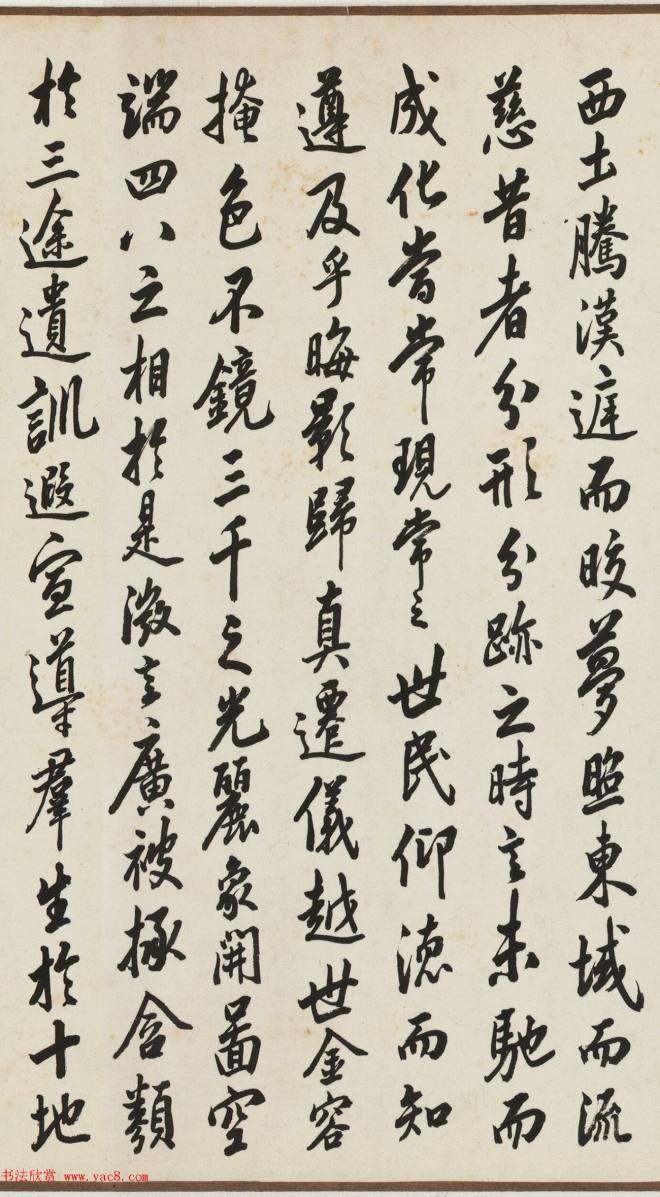 西土騰漢遅而皎夢照東域而流
慈昔者分形分跡之時言未馳而
成化當常現常之世民仰徳而知
遵及乎晦影歸真遷儀越世金容
掩色不鏡三千之光麗象開圖空
端四八之相於是微言廣被拯含類
於三途遺訓遐宣導羣生於十地
书法欣赏 www.yac8.com